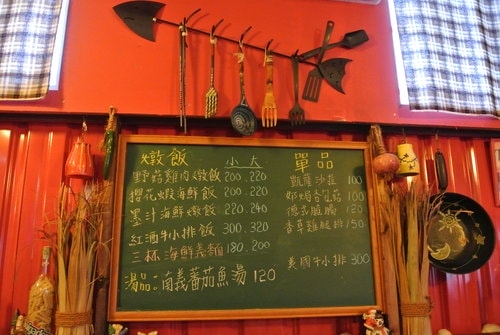 燉飯 小 大
野菇雞肉燉飯 200.220
櫻花蝦海鮮飯 200.220
墨汁海鮮燉飯 220.240
紅酒牛小排飯 300.320
三杯海鮮義麵 180.200
湯品:南義蕃茄魚湯 120
單品
凱薩沙拉 100
100
德式脆腸 120
香草雞腿排 150
美國牛小排 300